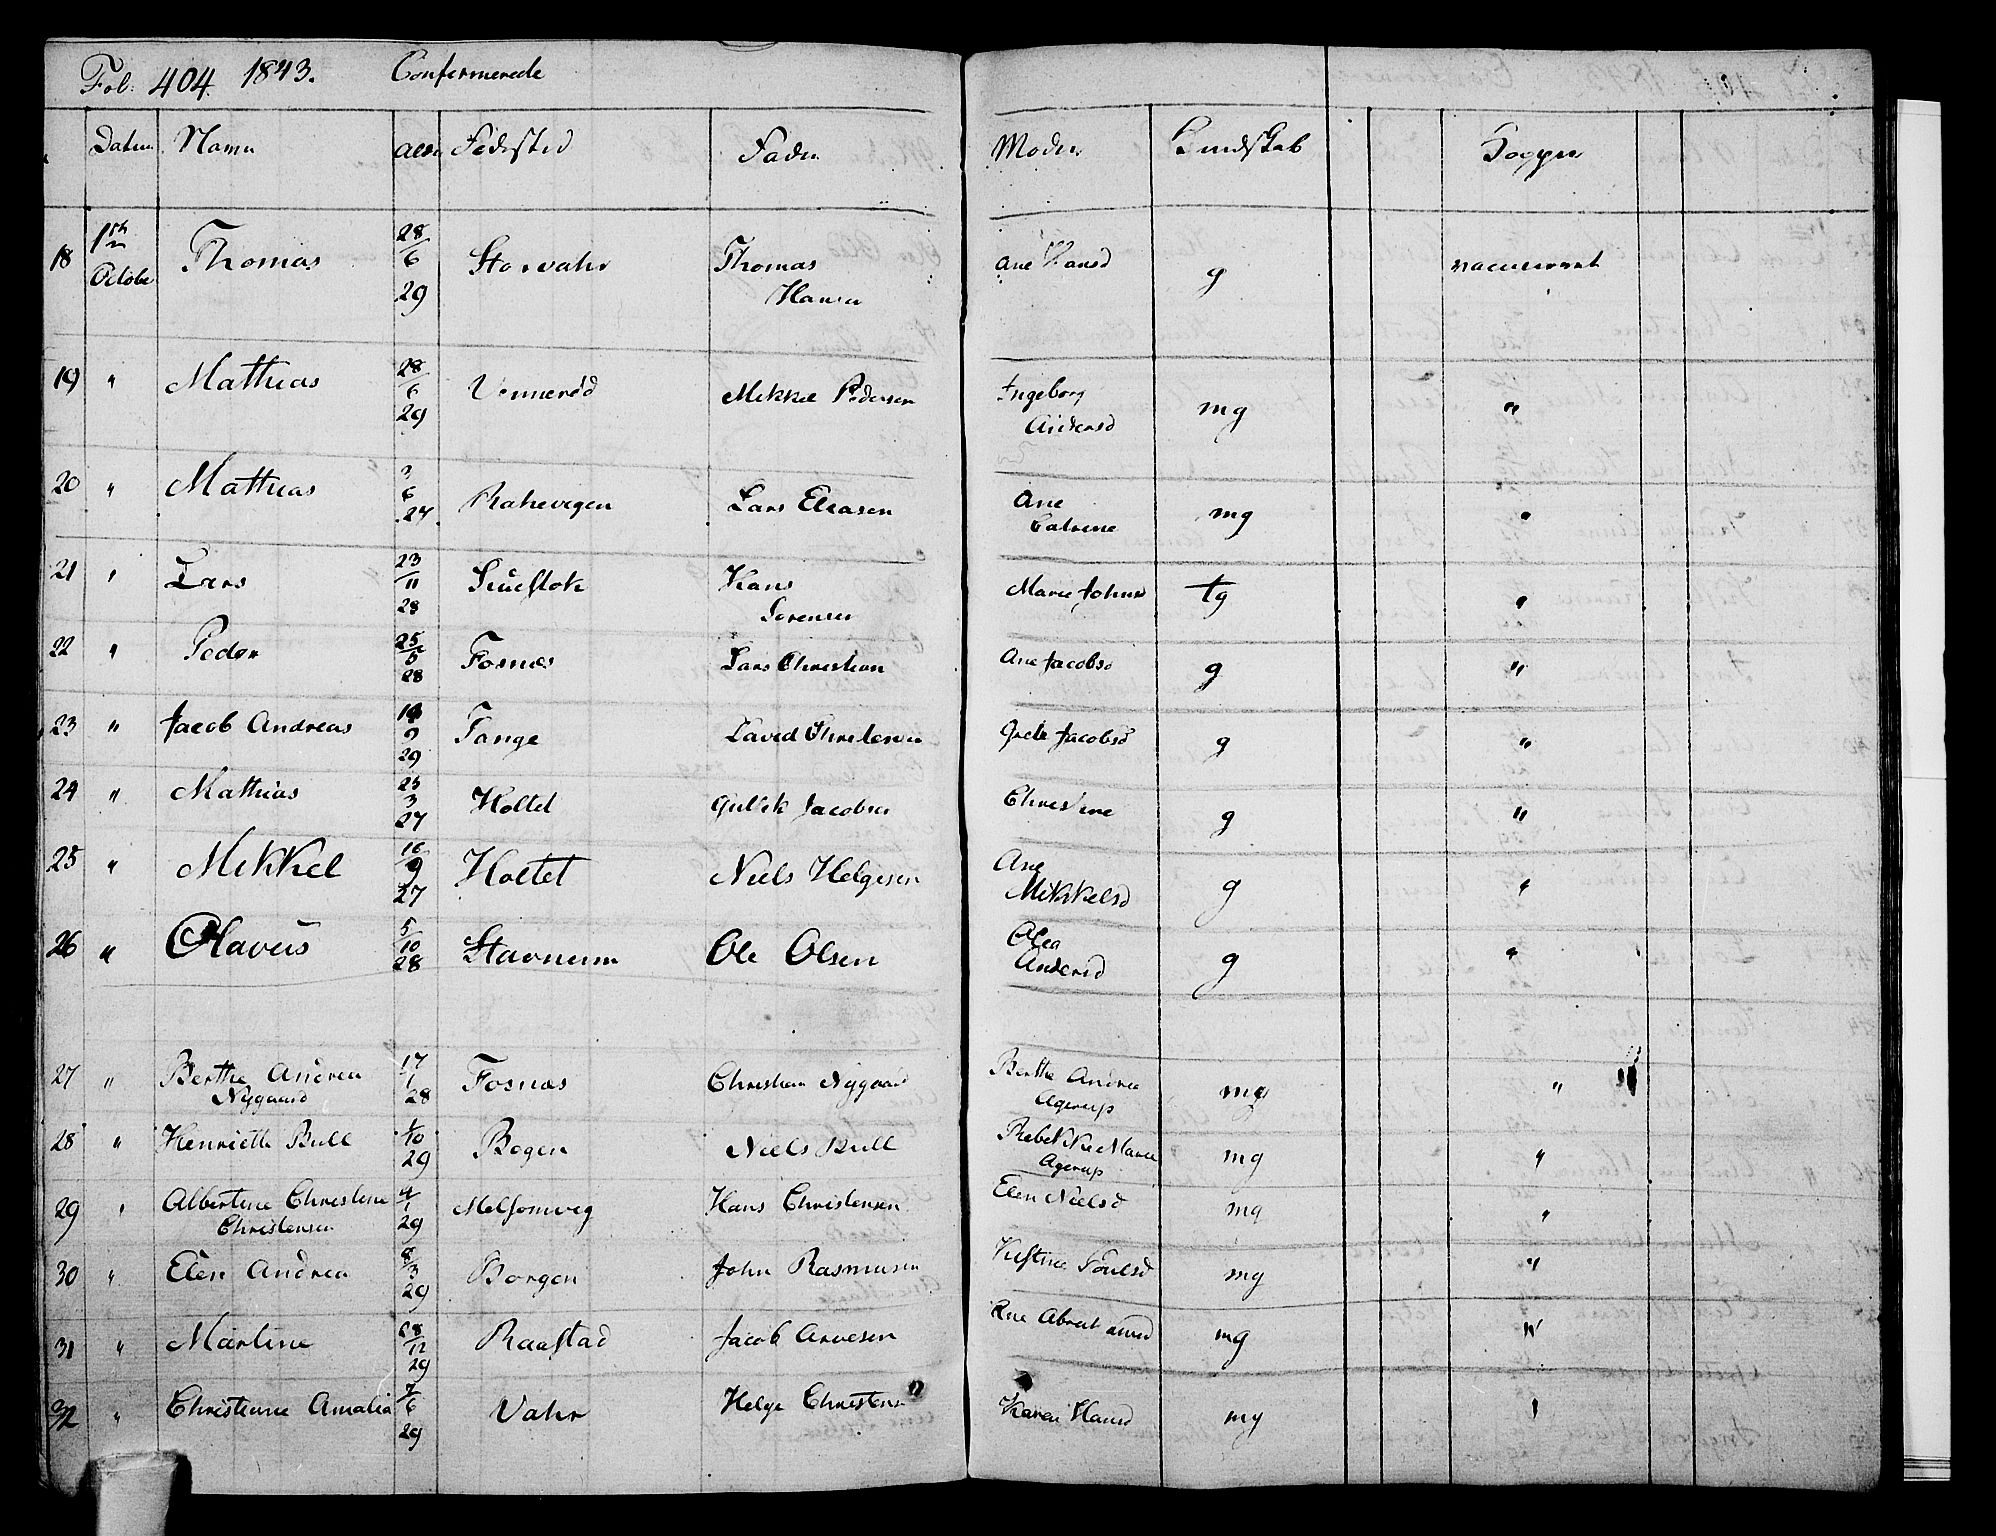 Fol: 404. 1843. Confermerede
Datum Navn Alder Fødested Fader Moder Kundskab
18 1ste October Thomas 28/6 29 Storvahr Thomas Hansen Ane Hansd g vaccinerat
19 " Mathias 28/6 29 Vennerød Mikkel Pedersen Ingeborg Andersd mg "
20 " Mathias 6 27 Rakevegen Lars Eliasen Ane Catrine mg "
21 " Lars 23/11 28 Hans Sørensen Marie Johnsd tg "
22 " Peder 25/5 28 Fosnæs Lars Christian Ane Jacobsd g "
23 " Jacob Andreas 9 29 Tange David Christensen Grete Jacobsd g "
24 " Mathias 25/3 27 Holtet Gulich Jacobsen Christine g "
25 " Mikkel 16/9 27 Holtet Niels Helgesen Ane Mikkelsd g "
26 " Olaveus 5/10 28 Stavnum Ole Olsen Olea Andersd g "
27 " Berthe Andrea Nygaard 17/1 28 Fosnæs Christian Nygaard Berthe Andrea Agerup mg "
28 " Henriette Bull 1/10 29 Bogen Niels Bull Rebekke Marie Agerup mg "
29 " Albertine Christine Christensen 4/1 29 Melsomvig Hans Christensen Elen Nielsd mg "
30 " Elen Andrea 8/3 29 Borgen John Rasmusen Kistine Poulsd mg "
31 " Martine 28/12 29 Raastad Jacob Arvesen Ane Abrahamsd mg "
32 " Christenne Amalia 7/6 29 Vahr Helge Christensen Karen Hansd mg "